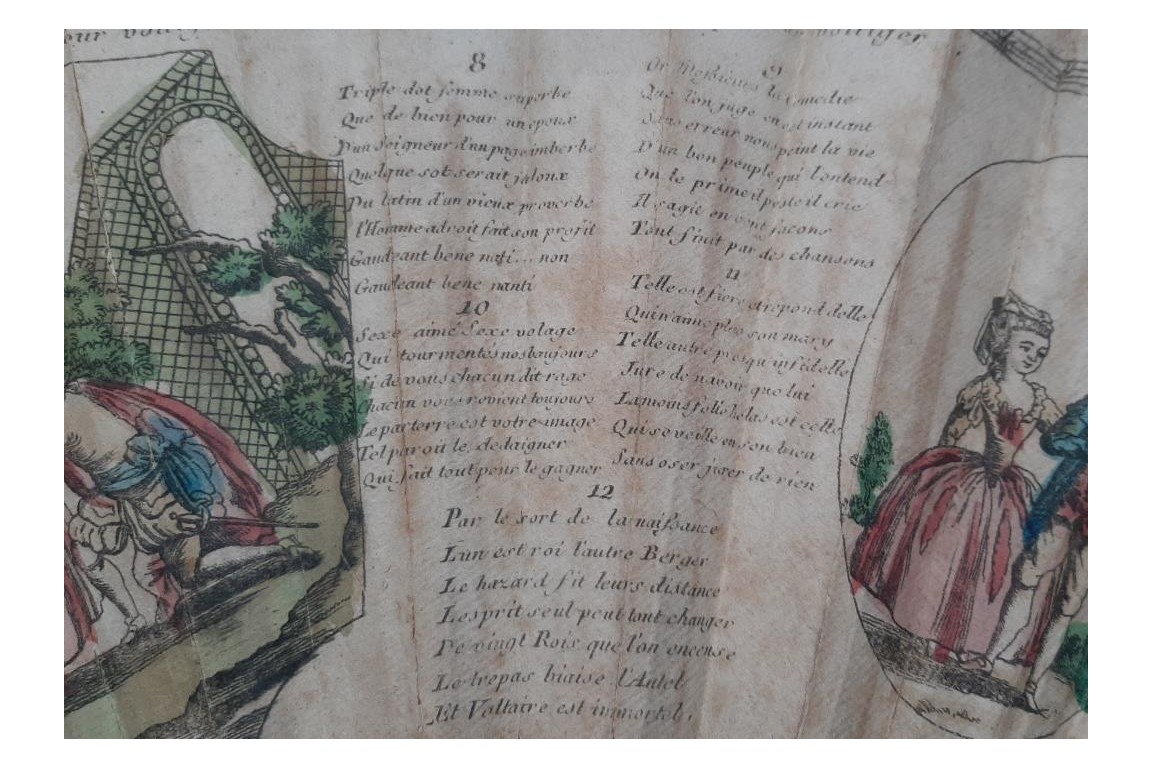 8
Triple dot femme superbe
Que de bien pour un epoux
D'un seigneur d'un page imberbe
Quelque sot serait jaloux
Du latin d'un vieux proverbe
l'Homme adroit fait son profit
Gaudeant bene nati... non
Gaudeant bene nanti
10
Sexe aimé Sexe volage
Qui tourmentés nos baujours
Si de vous chacun dit rage
Chacun vous revient toujours
Le parterre est votre image
Tel paroit le dedaigner
Qui fait tout pour le gagner
Or Messieurs la Comedie
Que l'on juge en cet instant
Sans erreur nous peint la vie
D'un bon peuple qui l'entend
On le prime il peste il crie
Il s'agit en cent façons
Tout finit par des chansons
11
Telle est fiere et repond delle
Qui n'aime plus son mary
Telle autre presqu infidelle
Jure de navoir que lui
La moins folle helas est celle
Qui se veille en son bien
Sans oser jurer de rien
12
Par le sort de la naissance
L'un est roi l'autre Berger
Le hazard fit leurs distance
Lesprit seul peut tout changer
De vingt Rois que l'on encense
Le trepas biaise l'Autel
Et Voltaire est immortel.